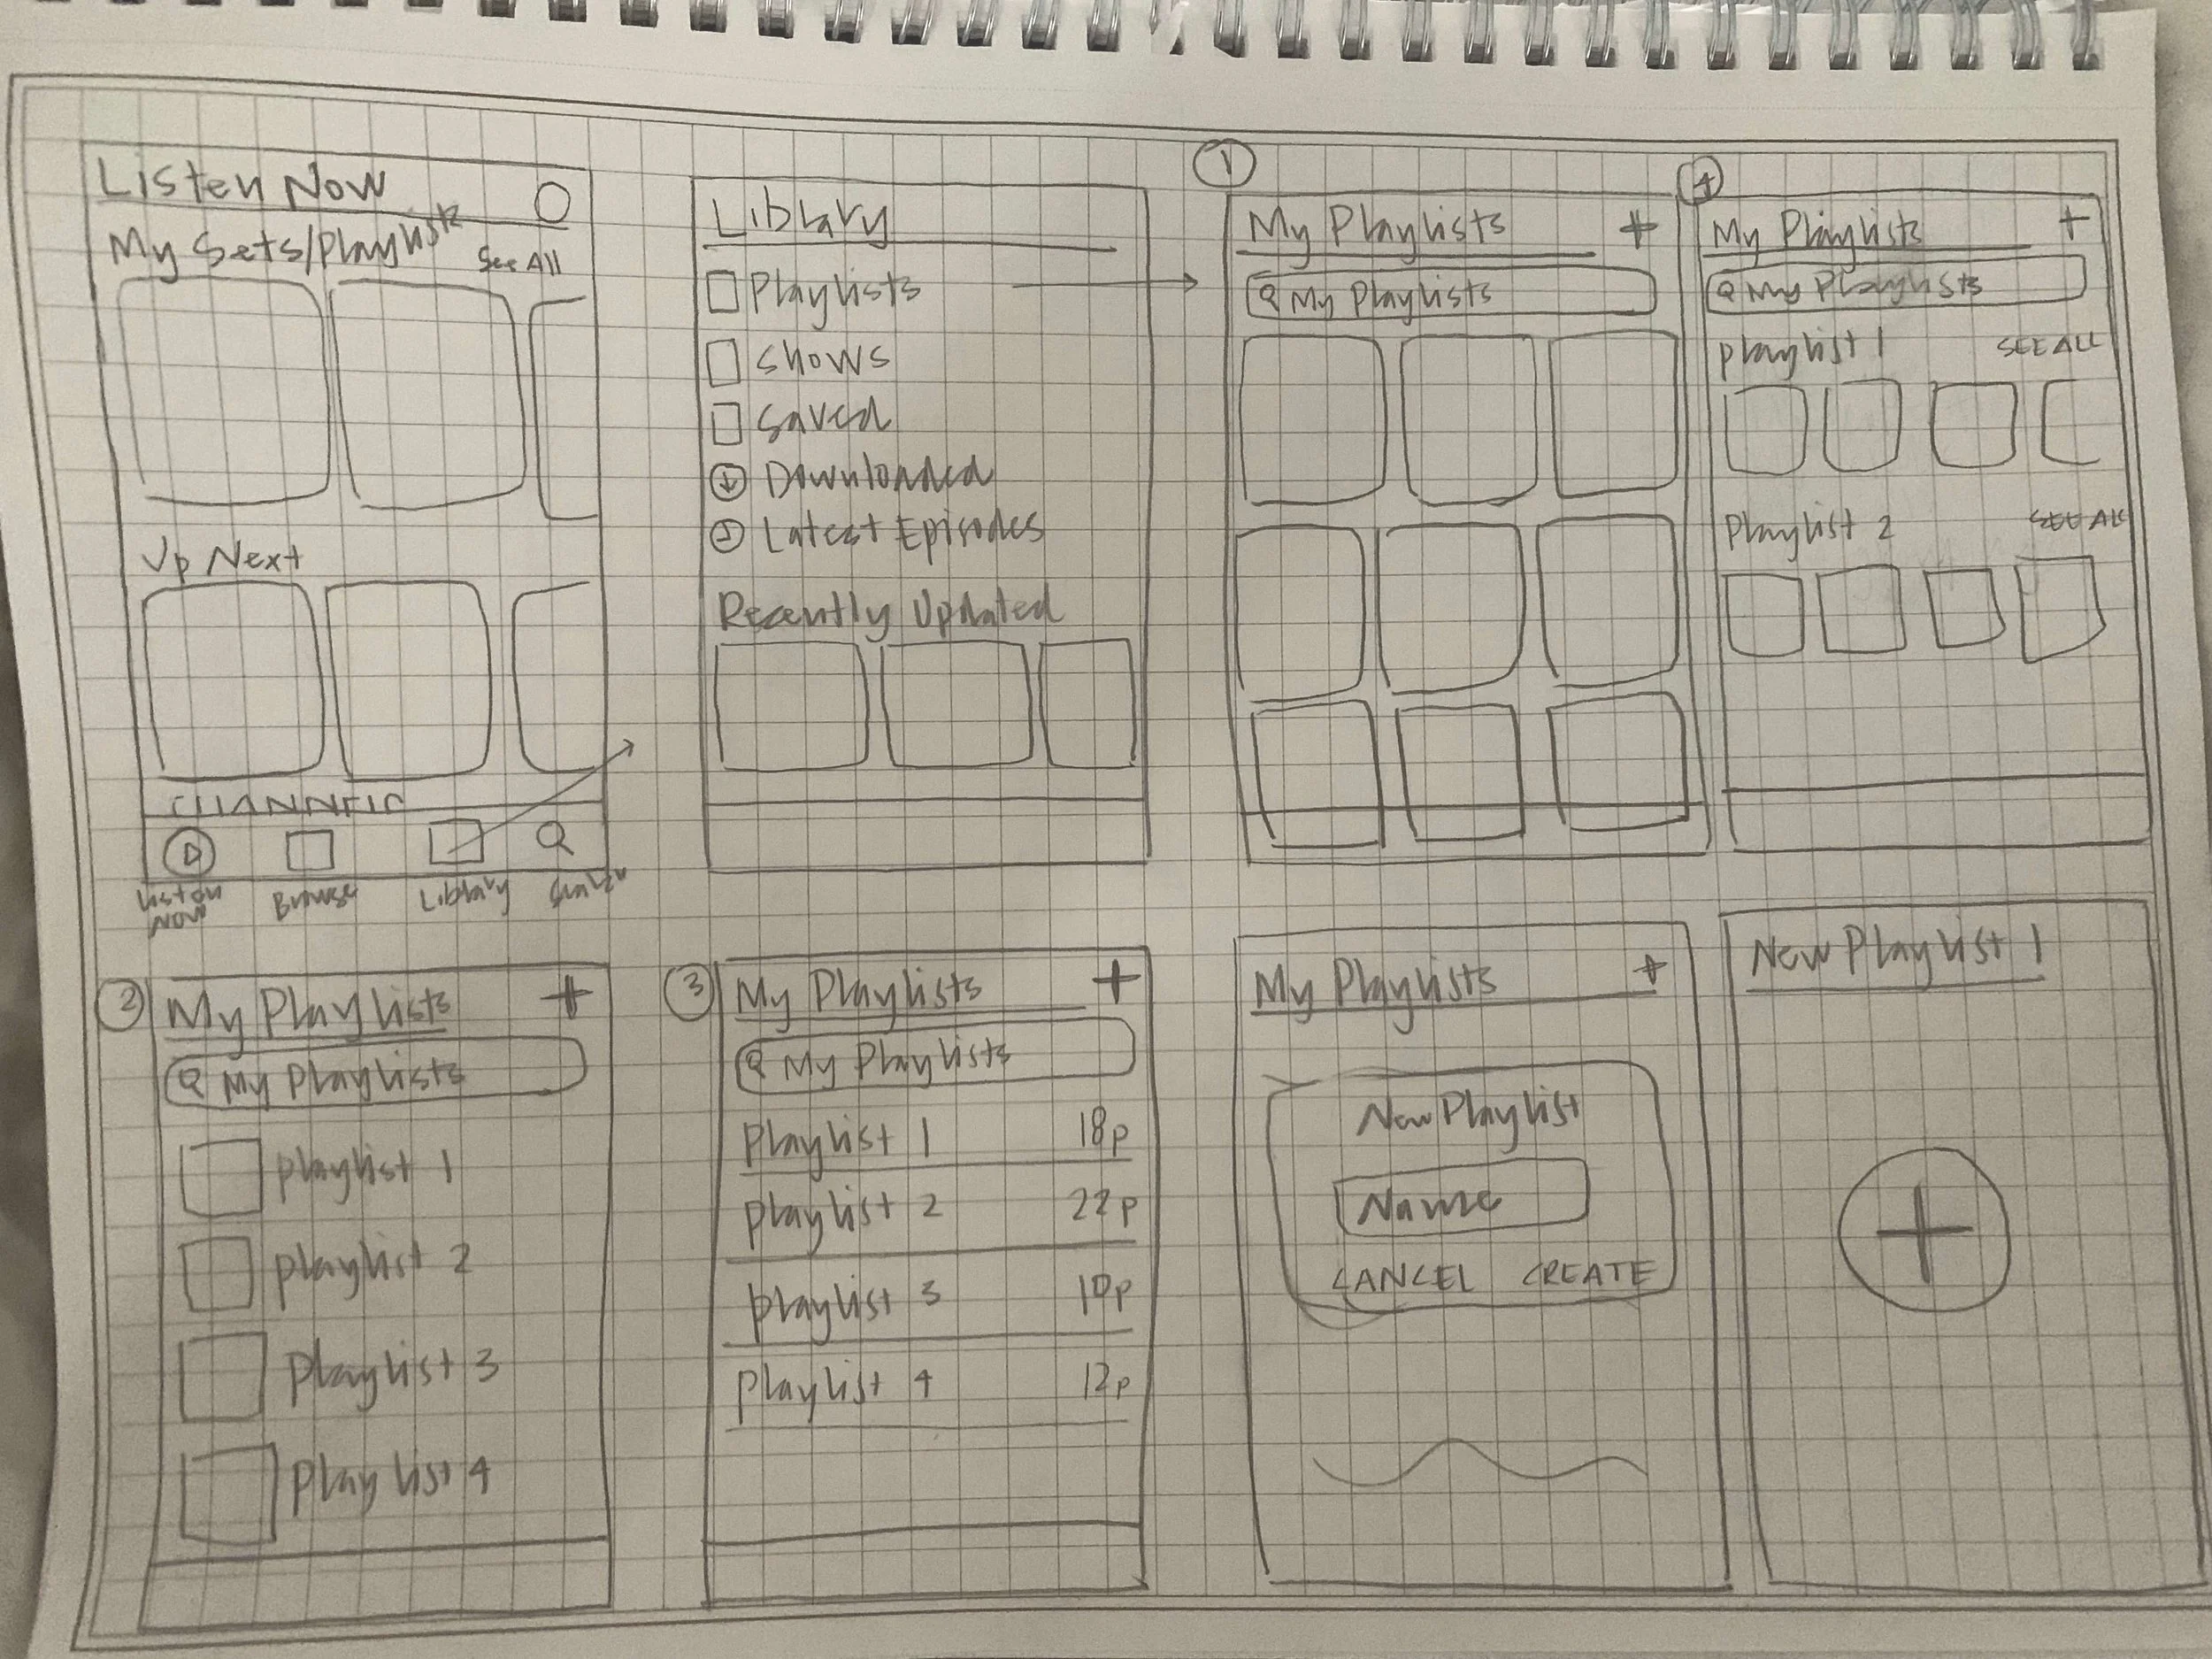 Listen Now
My Sets/Playlists
See All
Up Next
CHANNELS
Listen Now
Browse
Library
Search
Library
Playlists
Shows
Saved
Downloaded
Latest Episodes
Recently Updated
1
My Playlists +
My Playlists
4
My Playlists +
My Playlists
Playlist 1 SEE ALL
Playlist 2 SEE ALL
2
My Playlists +
My Playlists
Playlist 1
Playlist 2
Playlist 3
Playlist 4
3
My Playlists +
My Playlists
Playlist 1 18p
Playlist 2 22p
Playlist 3 10p
Playlist 4 12p
My Playlists +
New Playlist
Name
CANCEL CREATE
New Playlist 1
+